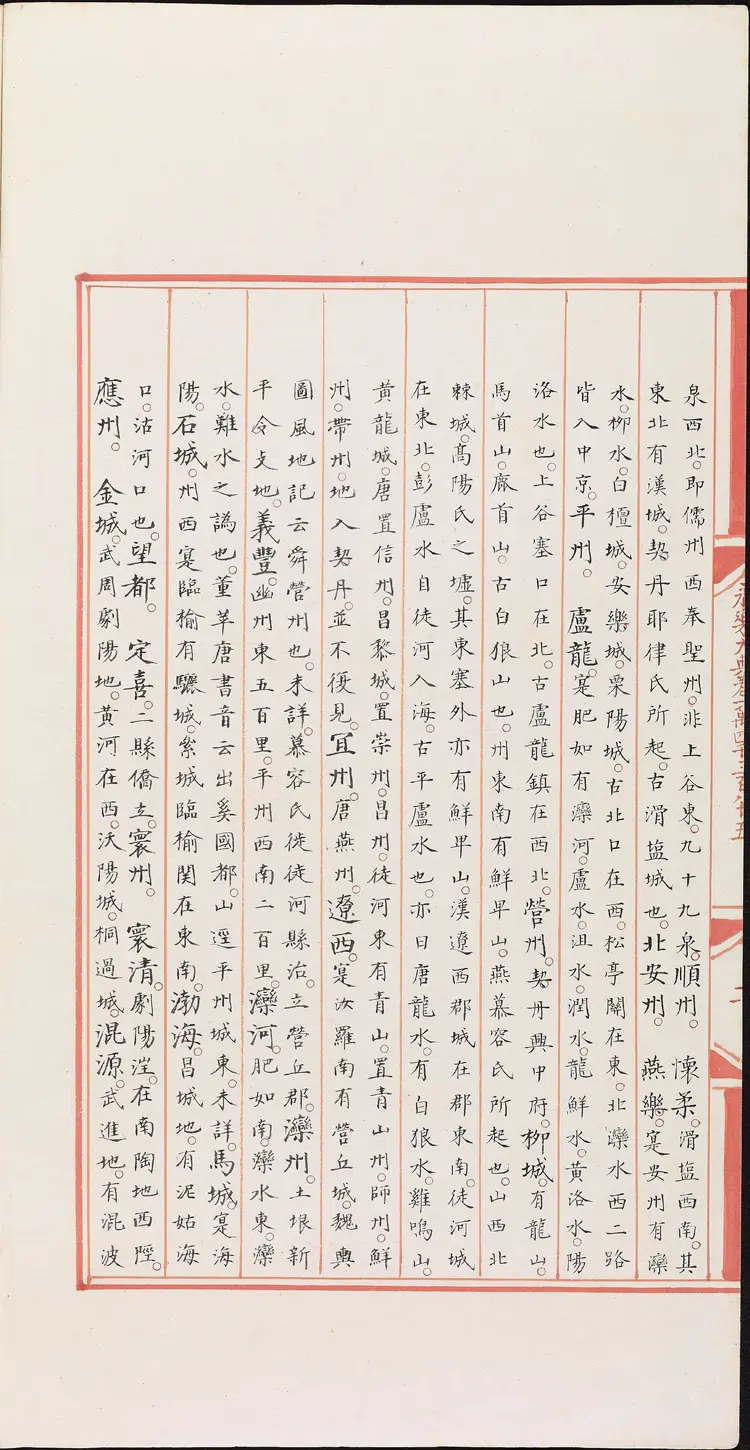 永樂大典卷一萬四千三百八十五
泉西北。即儒州西奉聖州。非上谷東。九十九泉。順州。　懷柔。滑塩西南。其
東北有漢城。契丹耶律氏所起。古滑塩城也。北安州。　燕樂。寔安州有灤
水。柳水。白檀城。安樂城。栗陽城。古北口在西。松亭關在東。北灤水西二路
皆入中京。平州。　盧龍。寔肥如有灤河。盧水。沮水。潤水。龍鮮水。黃洛水。陽
洛水也。上谷塞口在北。古盧龍鎮在西北。營州。契丹興中府。柳城。有龍山。
馬首山。麻首山。古白狼山也。州東南有鮮卑山。燕慕容氏所起也。山西北
棘城。高陽氏之墟。其東塞外亦有鮮卑山。漢遼西郡城在郡東南。徒河城
在東北。彭盧水自徒河入海。古平盧水也。亦曰唐龍水。有白狼水。雞鳴山。
黃龍城。唐置信州。昌黎城。置崇州。昌州。徒河東有青山。置青山州。師州。鮮
州。帶州。地入契丹。並不復見。宜州。唐燕州。遼西。寔汝羅南有營丘城。魏輿
圖風地記云舜營州也。未詳。慕容氏徙徒河縣治。立營丘郡。灤州。土垠新
平令支地。義豐。幽州東五百里。平州西南二百里。灤河。肥如南。灤水東。灤
水。難水之譌也。董苹唐書音云出奚國都。山逕平州城東。未詳。馬城。寔海
陽。石城。州西寔臨榆有驪城。絫城臨榆関在東南。渤海。昌城地。有泥姑海
口。沽河口也。望都。　定喜。二縣僑立。寰州。　寰清。劇陽涅。在南陶地西陘。
應州。　金城。武周劇陽地。黃河在西。沃陽城。桐過城。混源。武進地。有混波